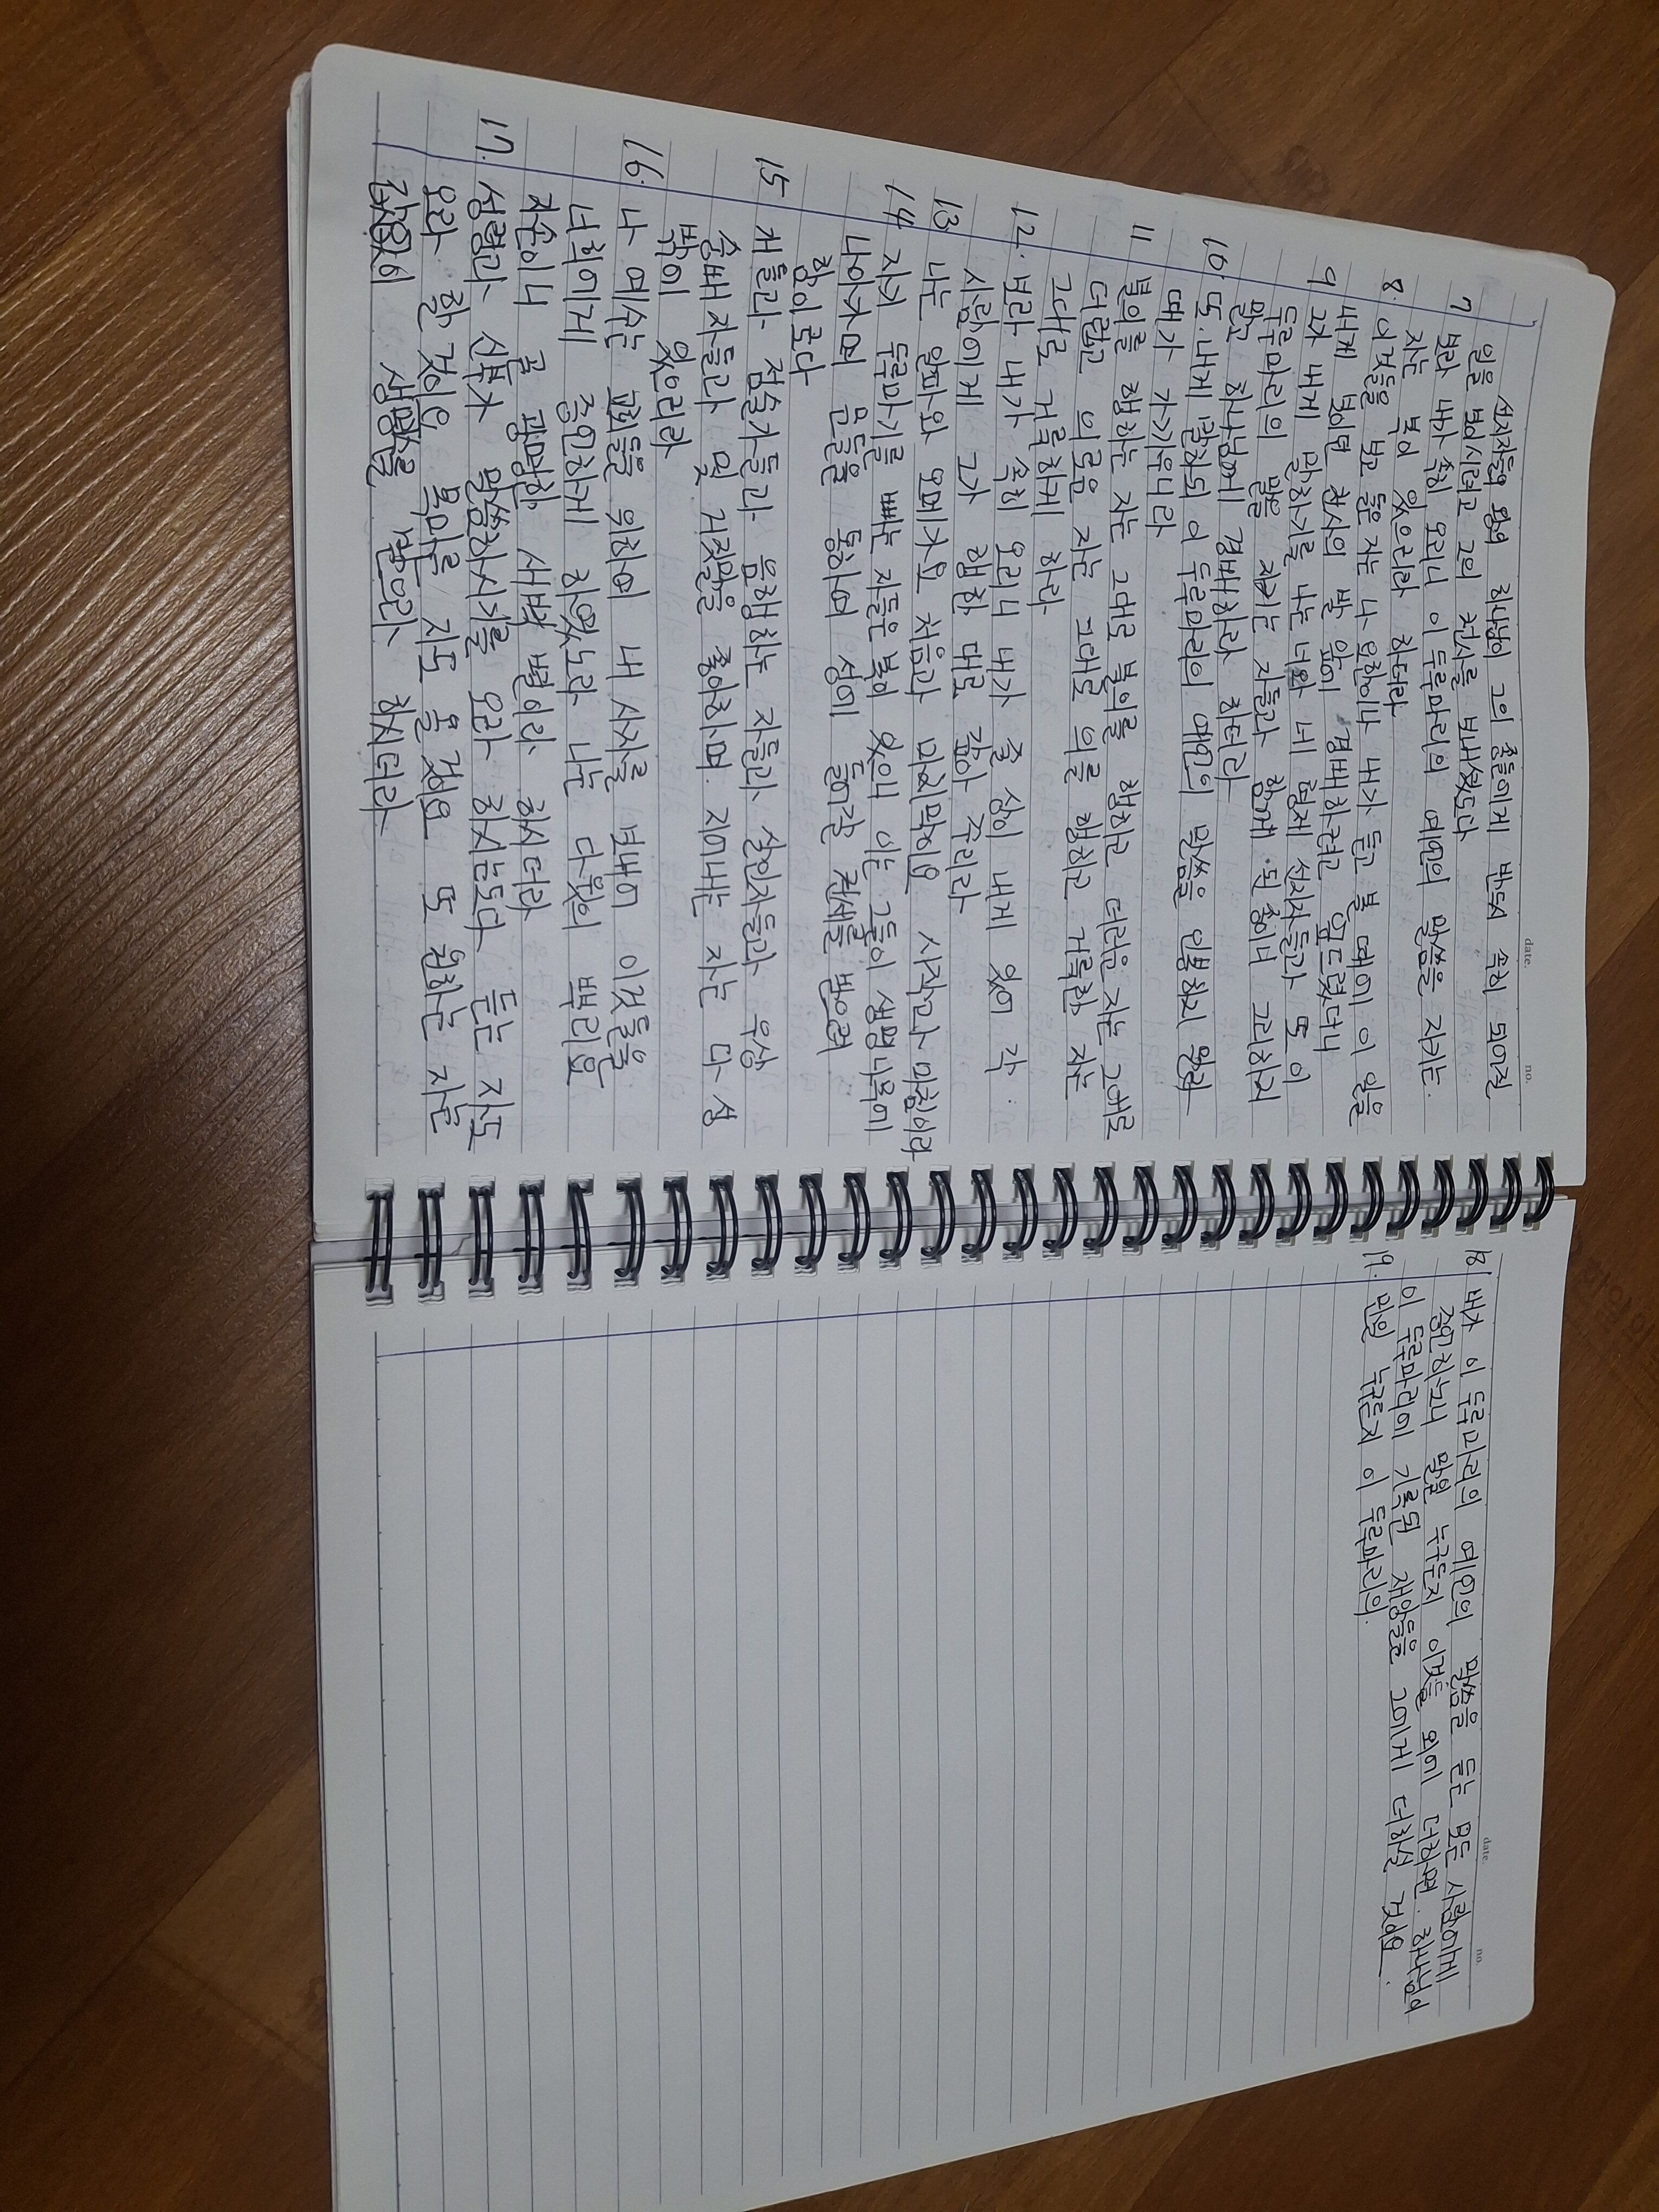 date. no.
선지자들의 영의 하나님이 그의 종들에게 반드시 속히 되어질
일을 보이시려고 그의 천사를 보내셨도다
7 보라 내가 속히 오리니 이 두루마리의 예언의 말씀을 지키는
자는 복이 있으리라 하더라
8. 이것들을 보고 들은 자는 나 요한이니 내가 듣고 볼 때에 이 일을
내게 보이던 천사의 발 앞에 경배하려고 엎드렸더니
9 그가 내게 말하기를 나는 너와 네 형제 선지자들과 또 이
두루마리의 말을 지키는 자들과 함께 된 종이니 그리하지
말고 하나님께 경배하라 하더라
10. 또 내게 말하되 이 두루마리의 예언의 말씀을 인봉하지 말라
때가 가까우니라
11 불의를 행하는 자는 그대로 불의를 행하고 더러운 자는 그대로
더럽고 의로운 자는 그대로 의를 행하고 거룩한 자는
그대로 거룩하게 하라
12. 보라 내가 속히 오리니 내가 줄 상이 내게 있어 각
사람에게 그가 행한 대로 갚아 주리라
13. 나는 알파와 오메가요 처음과 마지막이요 시작과 마침이라
14 자기 두루마기를 빠는 자들은 복이 있으니 이는 그들이 생명나무에
나아가며 문들을 통하여 성에 들어갈 권세를 받으려
함이로다
15 개들과 점술가들과 음행하는 자들과 살인자들과 우상
숭배자들과 및 거짓말을 좋아하며 지어내는 자는 다 성
밖에 있으리라
16. 나 예수는 교회들을 위하여 내 사자를 보내어 이것들을
너희에게 증언하게 하였노라 나는 다윗의 뿌리요
자손이니 곧 광명한 새벽 별이라 하시더라
17. 성령과 신부가 말씀하시기를 오라 하시는도다 듣는 자도
오라 할 것이요 목마른 자도 올 것이요 또 원하는 자는
값없이 생명수를 받으라 하시더라
date. no.
18 내가 이 두루마리의 예언의 말씀을 듣는 모든 사람에게
증언하노니 만일 누구든지 이것들 외에 더하면 하나님이
이 두루마리에 기록된 재앙들을 그에게 더하실 것이요
19. 만일 누구든지 이 두루마리의